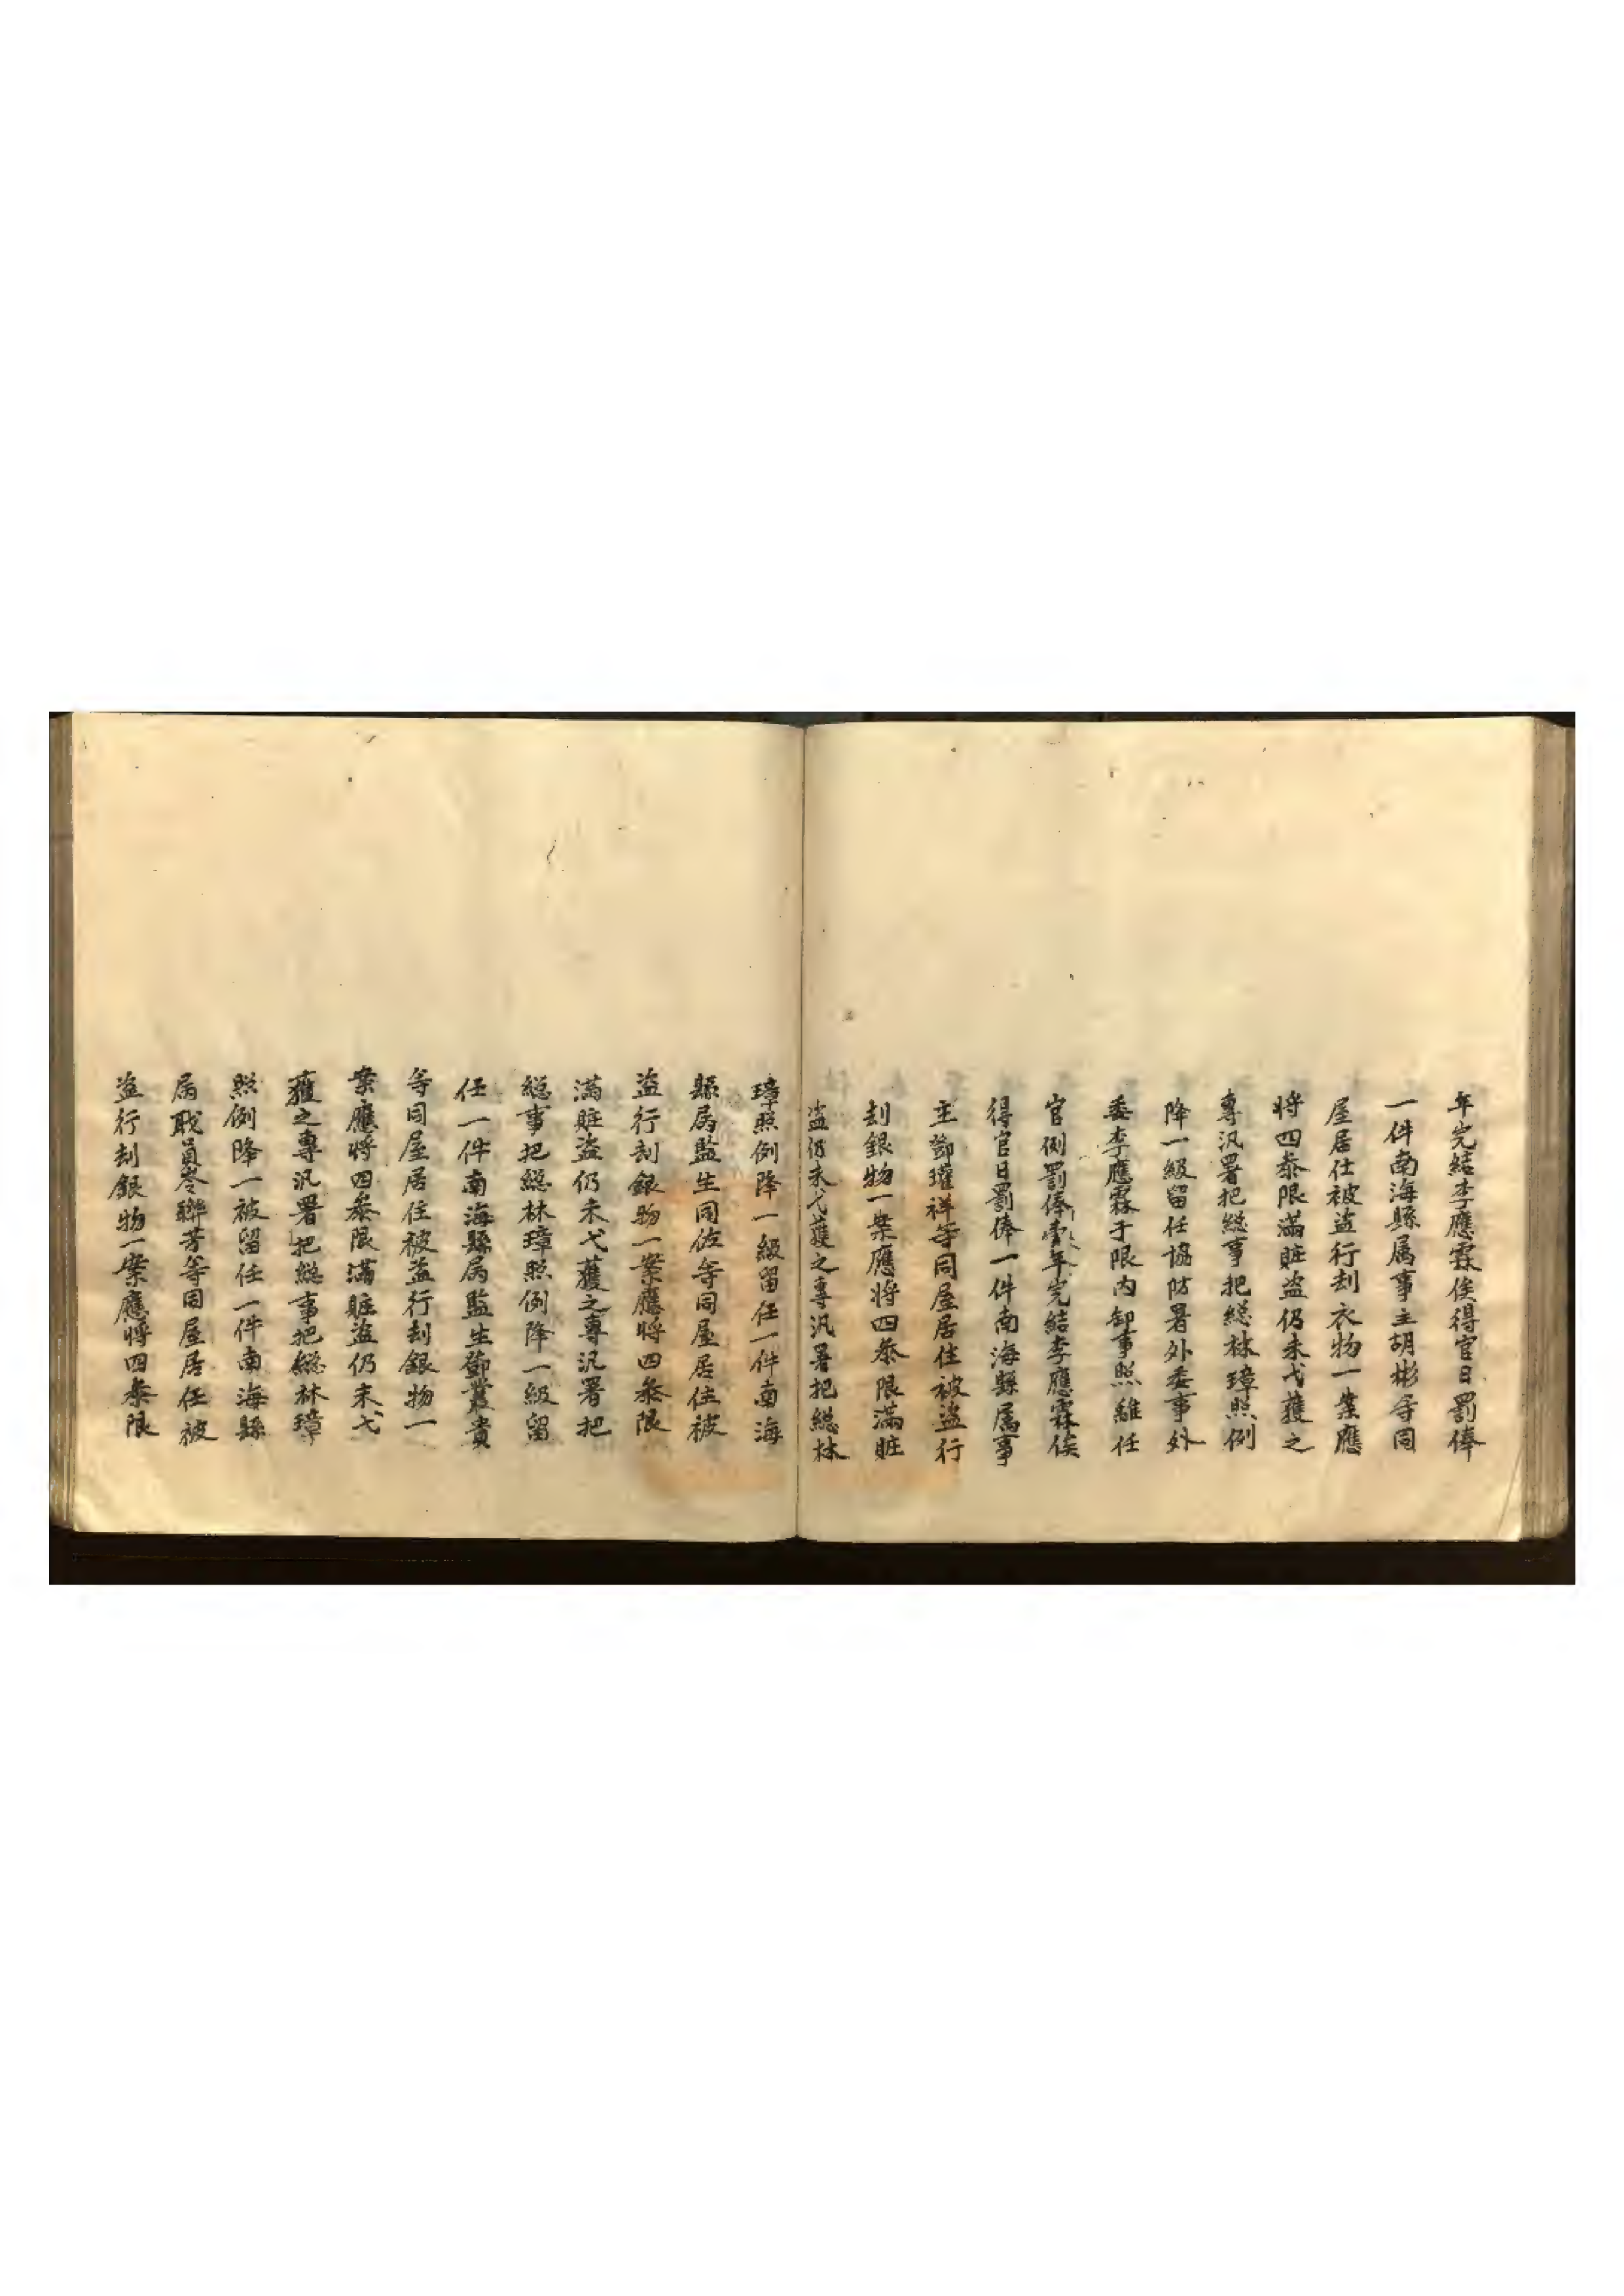 年完結李應霖俟得官日罰俸
一件南海縣属事主胡彬等同
屋居仕被盗行刦衣物一案應
将四叅限滿賍盗仍未弋獲之
專汛署把総事把総林璋照例
降一級留任協防署外委事外
委李應霖于限内卸事照離任
官例罰俸壹年完結李應霖俟
得官日罰俸一件南海縣属事
主鄧瓘祥等同屋居住被盗行
刦銀物一案應将四叅限滿賍
盗仍未弋獲之專汛署把総林
璋照例降一級留任一件南海
縣属監生同佐等同屋居住被
盗行刦銀物一案應将四叅限
滿賍盗仍未弋獲之專汛署把
総事把総林璋照例降一級留
任一件南海縣属監生鄧叢貴
等同屋居住被盗行刦銀物一
案應將四叅限滿賍盗仍未弋
獲之專汛署把総事把総林璋
照例降一被留任一件南海縣
属職員岑聯芳等同屋居任被
盗行刦銀物一案應將四叅限